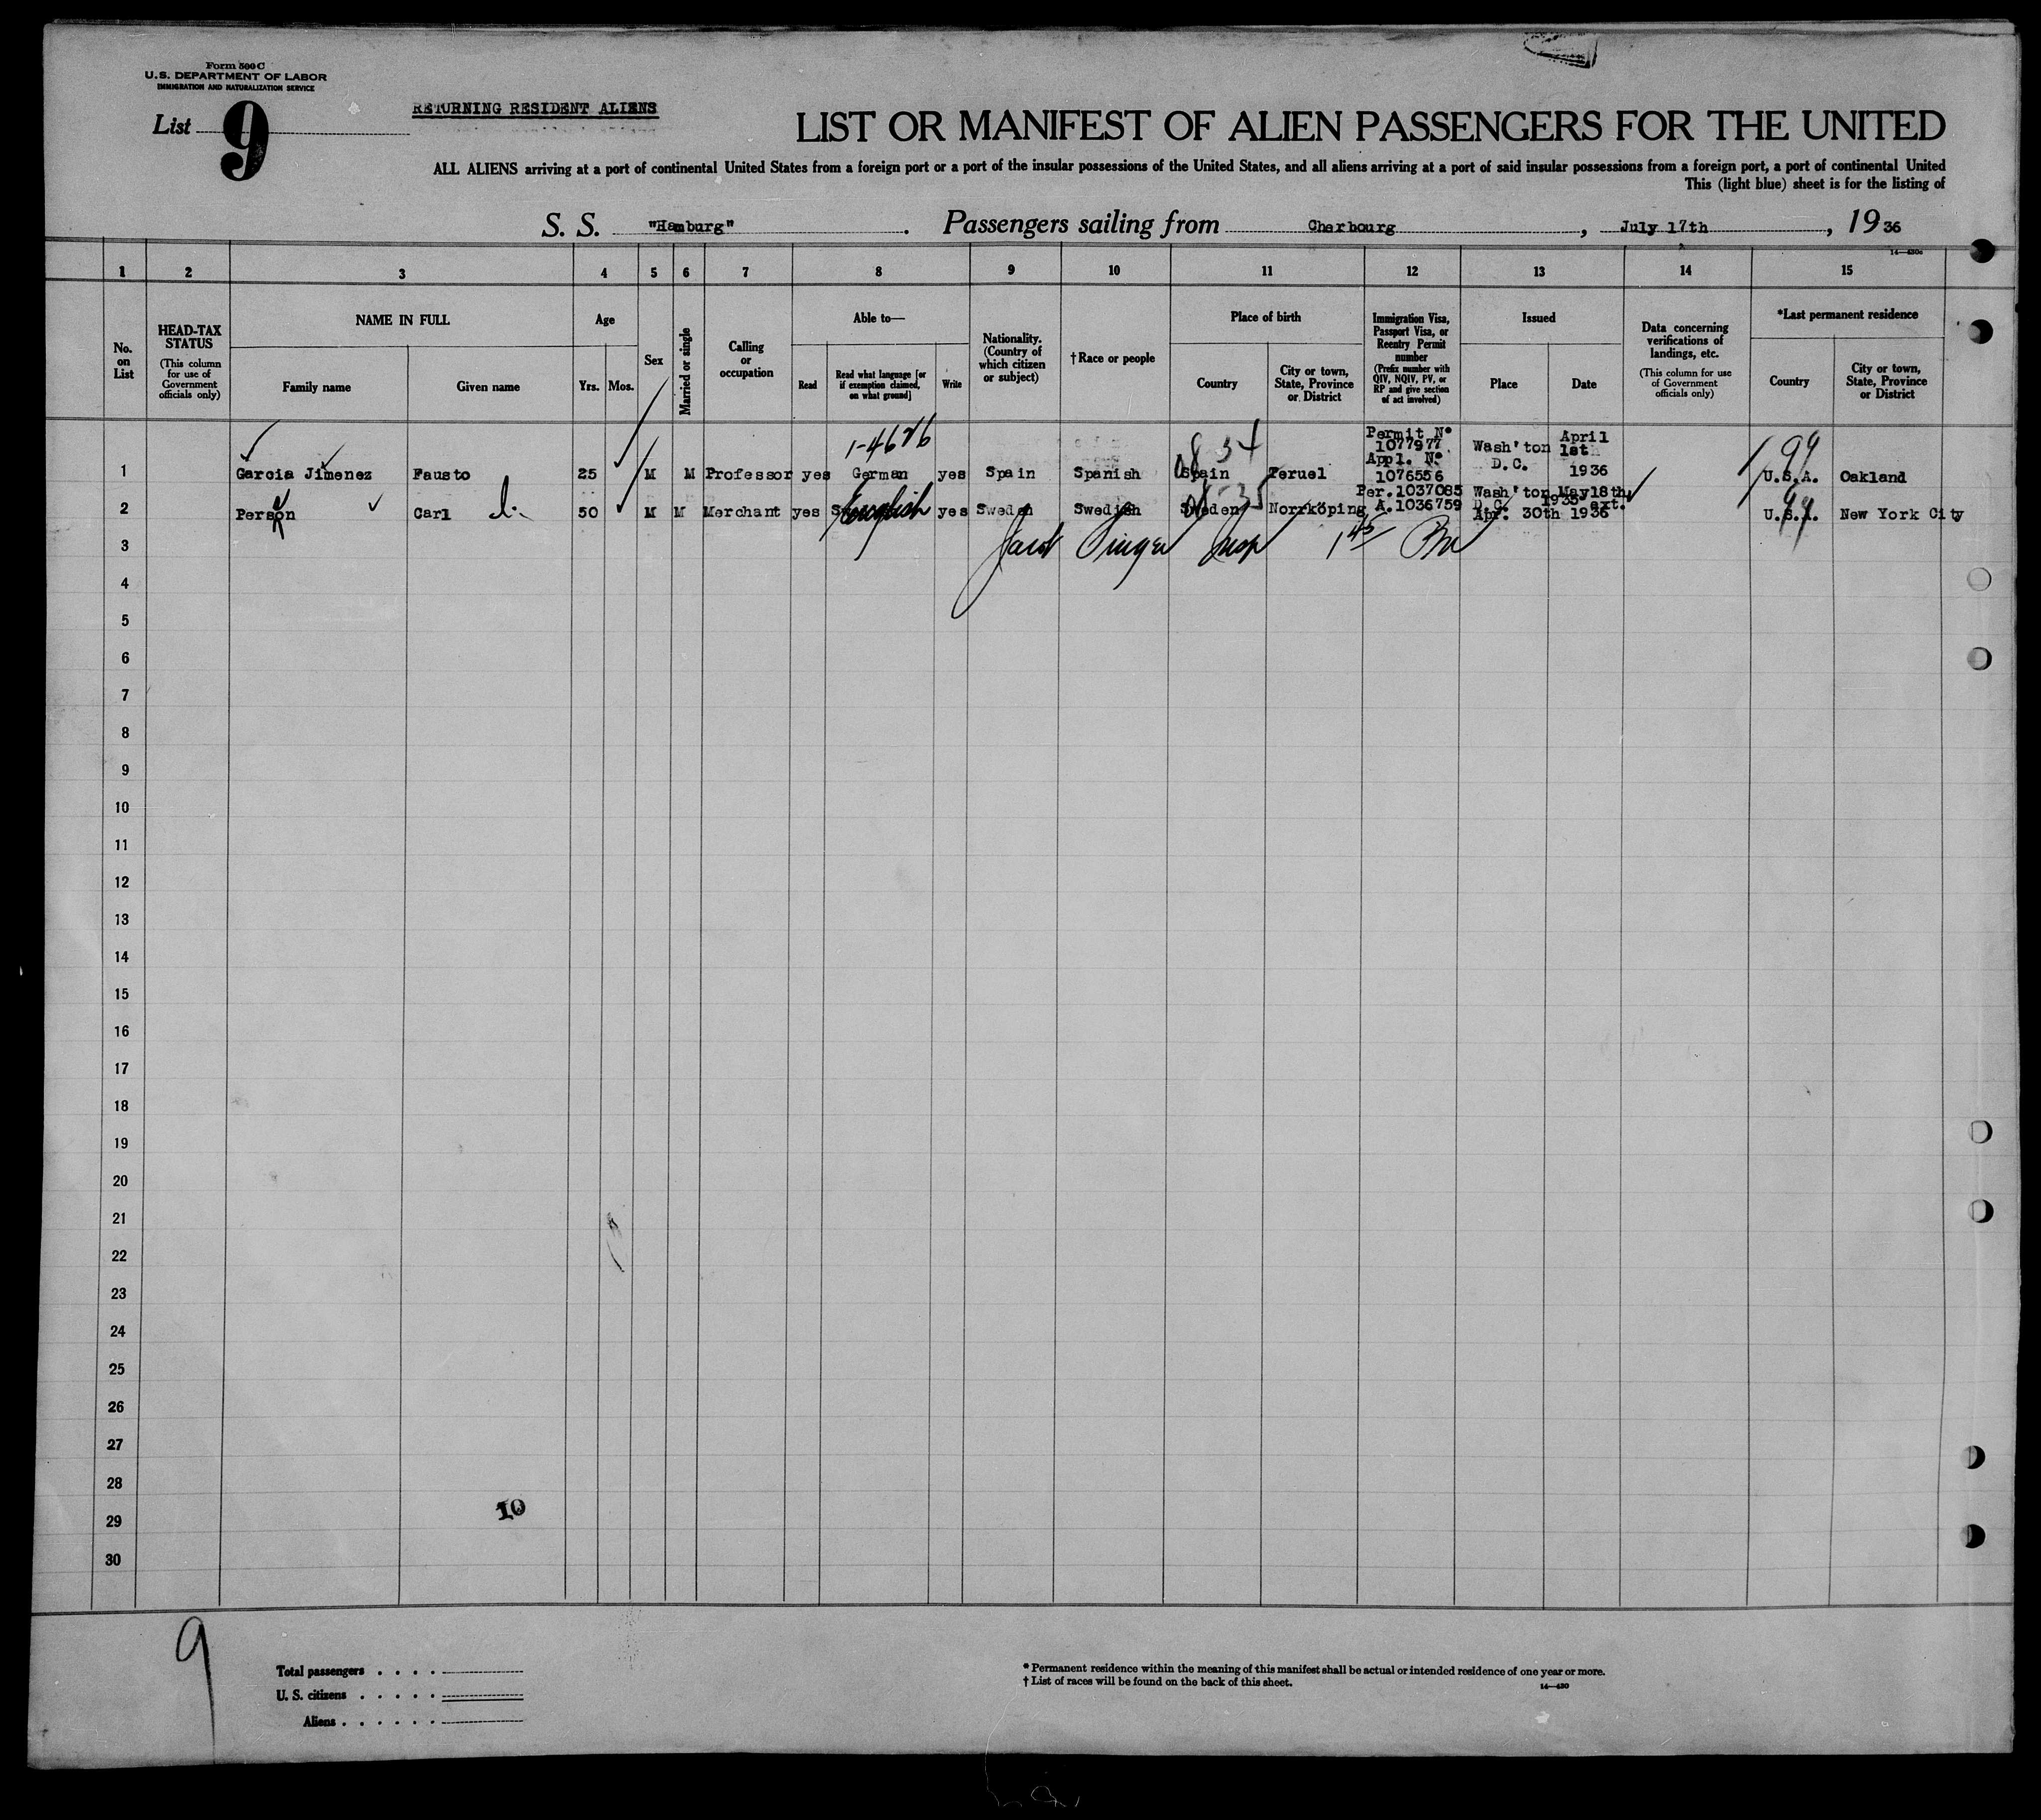 Form 500 C
U.S. DEPARTMENT OF LABOR
IMMIGRATION AND NATURALIZATION SERVICE
List 9
RETURNING RESIDENT ALIENS
LIST OR MANIFEST OF ALIEN PASSENGERS FOR THE UNITED
ALL ALIENS arriving at a port of continental United States from a foreign port or a port of the insular possessions of the United States, and all aliens arriving at a port of said insular possessions from a foreign port, a port of continental United
This (light blue) sheet is for the listing of
S. S. "Hamburg". Passengers sailing from Cherbourg, July 17th, 1936
1 2 3 4 5 6 7 8 9 10 11 12 13 14 15
No. on List
HEAD-TAX STATUS
(This column for use of Government officials only)
NAME IN FULL
Family name
Given name
Age
Yrs. Mos.
Sex
Married or single
Calling or occupation
Able to—
Read
Read what language [or if exemption claimed, on what ground]
Write
Nationality. (Country of which citizen or subject)
†Race or people
Place of birth
Country
City or town, State, Province or District
Immigration Visa, Passport Visa, or Reentry Permit number
(Prefix number with QIV, NQIV, PV, or RP and give section of act involved)
Issued
Place
Date
Data concerning verifications of landings, etc.
(This column for use of Government officials only)
*Last permanent residence
Country
City or town, State, Province or District
1 Garcia Jimenez Fausto 25 M M Professor yes German yes Spain Spanish Spain Teruel Permit No 1077977 Appl. No 1076556 Wash'ton D.C. April 1st 1936 U.S.A. Oakland
2 Person Carl 50 M M Merchant yes English yes Sweden Swedish Sweden Norrköping Per.1037085 A.1036759 Wash'ton D.C. May18th 1935 ext. Apr. 30th 1936 U.S.A. New York City
3
4
5
6
7
8
9
10
11
12
13
14
15
16
17
18
19
20
21
22
23
24
25
26
27
28
29
30
10
9
Total passengers
U. S. citizens
Aliens
* Permanent residence within the meaning of this manifest shall be actual or intended residence of one year or more.
† List of races will be found on the back of this sheet.
14—430